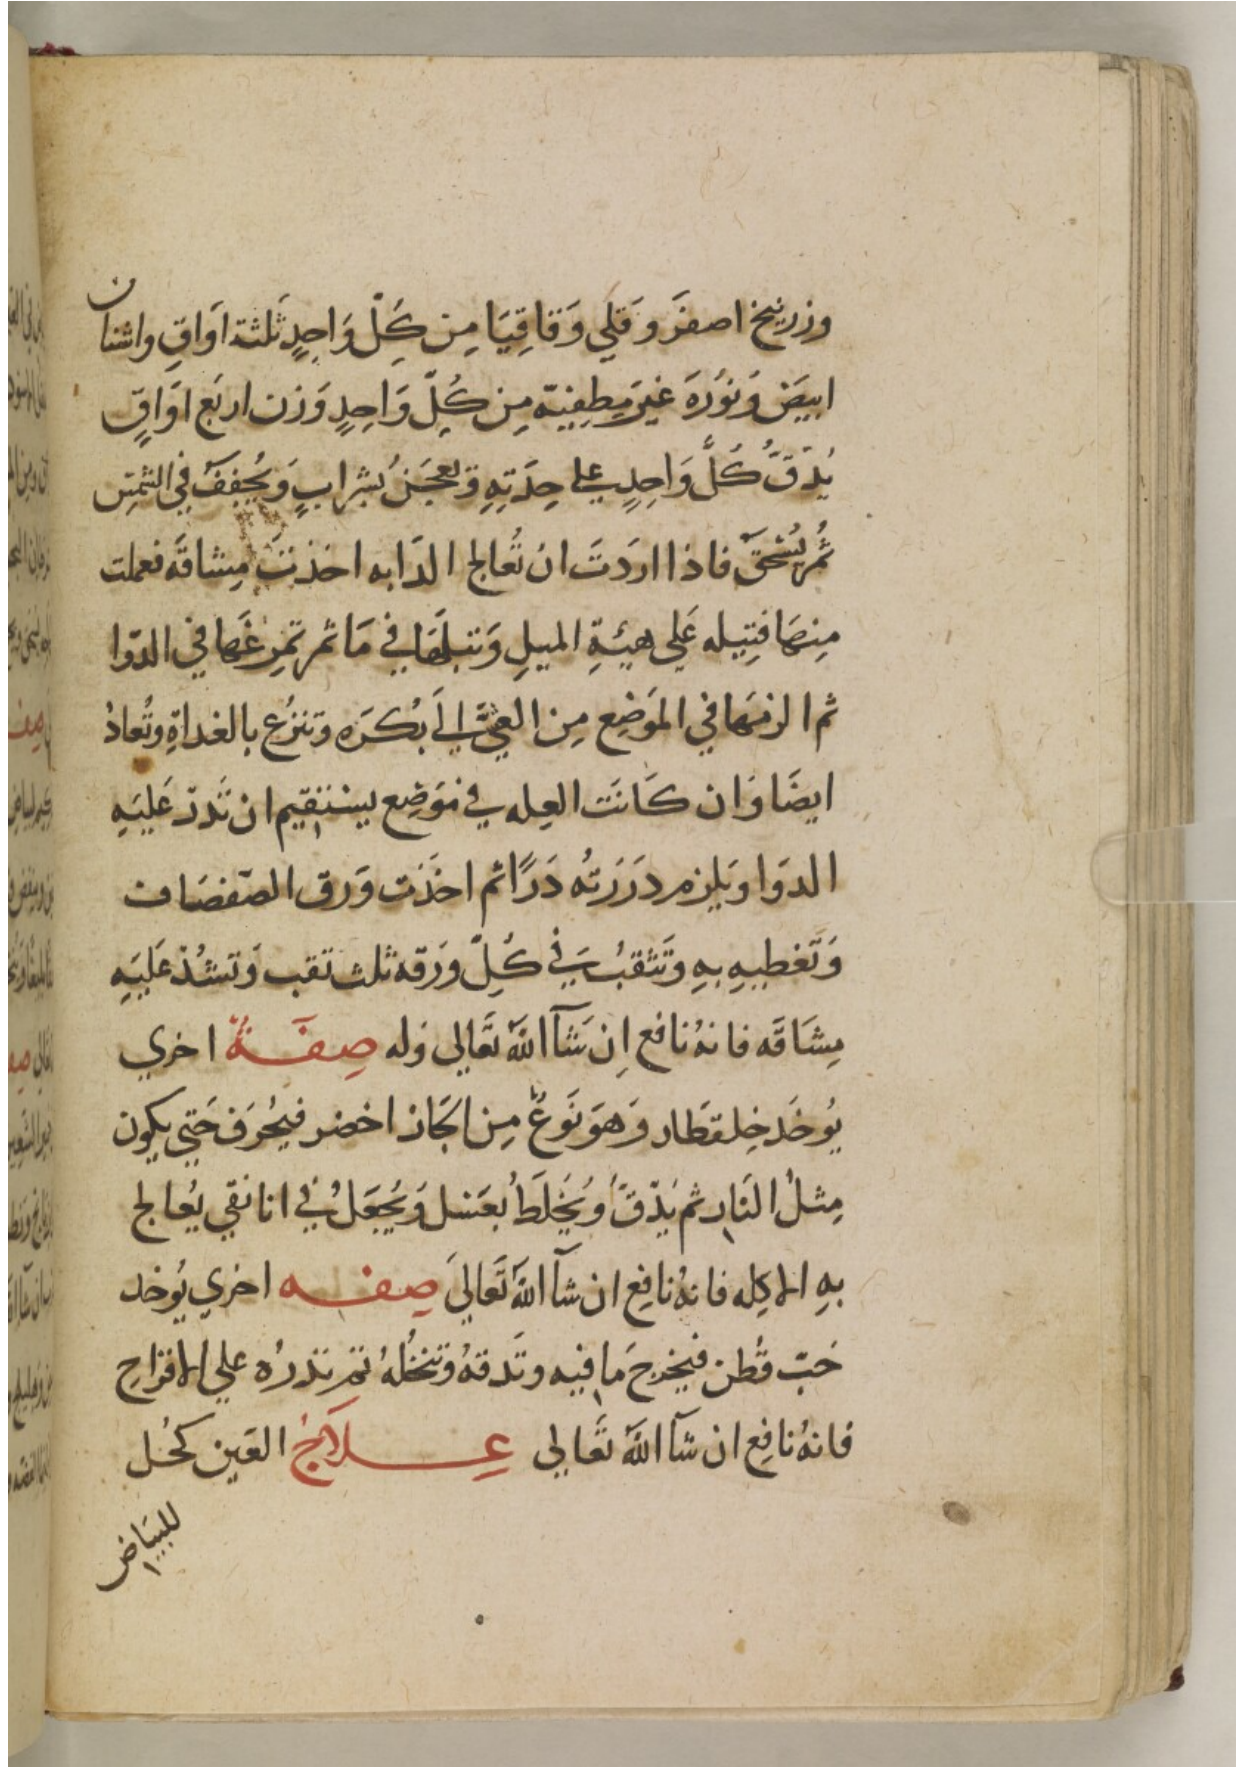 وزرنيخ اصفَر وَقلي وَقاقِيَا مِن كِلّ وَاحِدٍ ثلثة اوَاقٍ واشنان
ابيَض وَنوُرَة غيَر مطِفيّه مِن كُلِّ وَاحِدٍ وَزن اربَع اوَاقٍ
يُدَقّ كُلّ وَاحِدٍ علي حِدَتِهِ وَيعجَنُ بشرابٍ وَيُجففّ في الشمّسِ
ثُم يُسْحَق فاذا اردَتَ ان تُعالج الدّابه اخذتَ مِشاقَه فعملت
مِنهَا فتِيله عَلي هيئةِ الميلِ وَتبلّهَا في مَا ثم تمرِغَها في الدّوا
ثم الزمَها في الموَضِع مِن العِشيّ الي بُكرَه وَتنزُع بالغداةِ وتُعادُ
ايضَا وَان كَانَت العِله في مَوَضِع يستقيم ان تَدرّ عَليَهِ
الدوَا وَيلزم درَرَتُه دَرًا ثم اخذَت وَرق الصّفصَاف
وَتَغطيهِ بهِ وَتَثقبُ في كُلِّ وَرَقه ثلث ثقب وَتشُدّ عَليَهِ
مِشَاقَه فانهُ نافع اِن شَآ اللهُ تعَالي وَله صِفَةٌ اخري
يُوخَد خِلقطَار وَهوَ نَوَعٌ مِن الجَاز اخضر فيُحرَف حَتي يكون
مِثلُ النَار ثم يدَقّ وَيُخلَطُ بعَسل وَيُجعَلُ في انا نقي يُعالج
بهِ الاكِله فانهُ نافِع ان شآ اللهُ تعَاليَ صِفه اخري يُوخد
حَبّ قُطن فيخرجَ مَا فيه وتَدقهُ وَتنخلُهُ ثم تدرُه علي الاقرَاحِ
فانهُ نافِع ان شآ اللهُ تعَالي عِلَاجُ العَين كحُل
للبيَاض